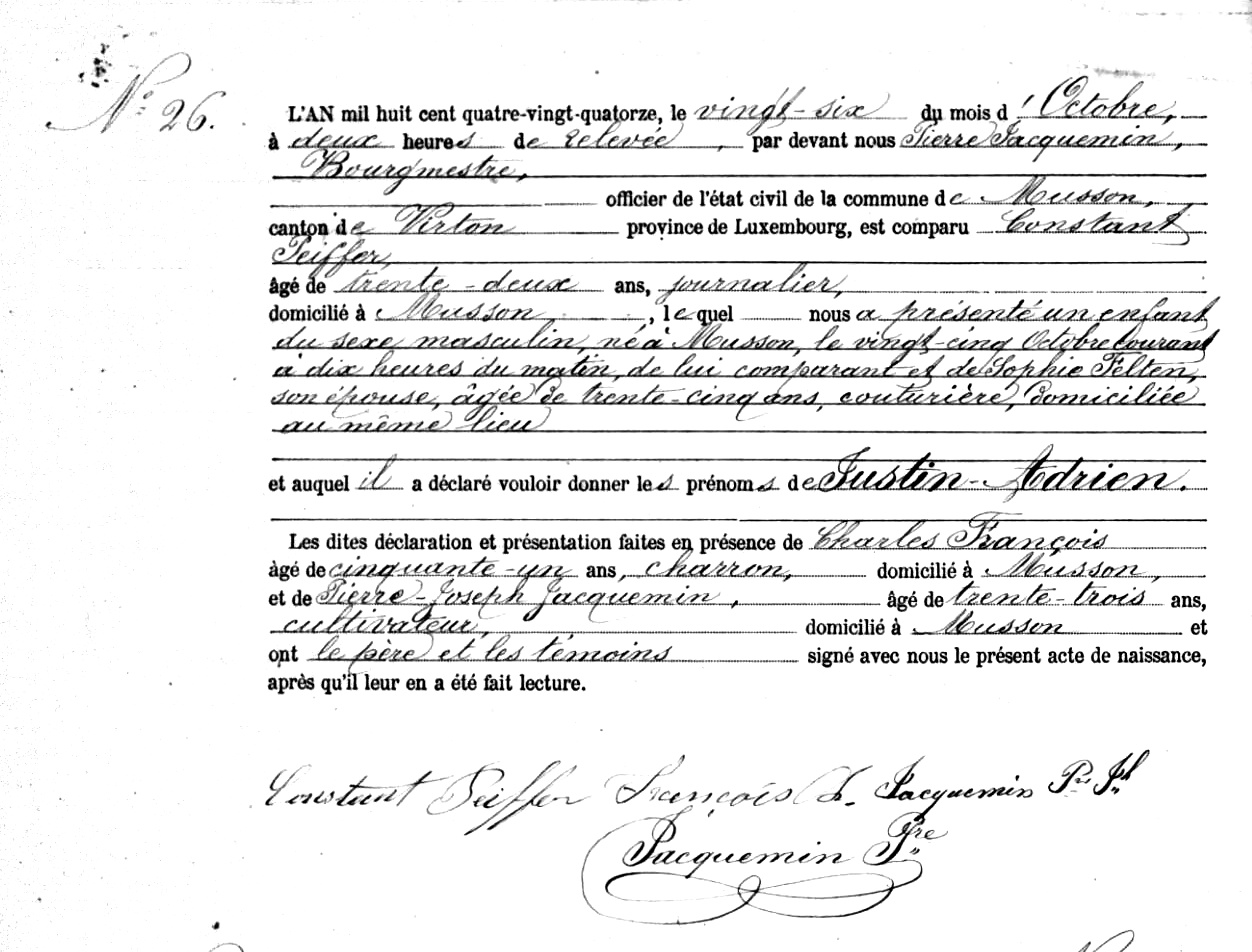 N° 26.
L'AN mil huit cent quatre-vingt-quatorze, le vingt-six du mois d'Octobre,
à deux heures de relevée, par devant nous Pierre Jacquemin,
Bourgmestre,
officier de l'état civil de la commune de Musson,
canton de Virton province de Luxembourg, est comparu Constant
Peiffer,
âgé de trente-deux ans, journalier,
domicilié à Musson, lequel nous a présenté un enfant
du sexe masculin, né à Musson, le vingt-cinq Octobre courant
à dix heures du matin, de lui comparant et de Sophie Felten,
son épouse, âgée de trente-cinq ans, couturière, domiciliée
au même lieu
et auquel il a déclaré vouloir donner les prénoms de Justin-Adrien.
Les dites déclaration et présentation faites en présence de Charles François
âgé de cinquante-un ans, charron, domicilié à Musson,
et de Pierre-Joseph Jacquemin, âgé de trente-trois ans,
cultivateur, domicilié à Musson et
ont le père et les témoins signé avec nous le présent acte de naissance,
après qu'il leur en a été fait lecture.
Constant Peiffer François Jacquemin Pre Jh
Jacquemin Pre